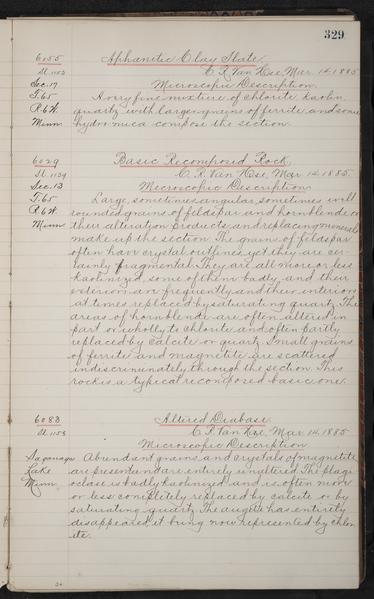 329
6055 Aphanetic Clay Slate.
Sl. 1152 C. R. Van Hise, Mar. 14. 1885.
Sec. 17 Microscopic Description.
T. 65 A very fine mixture of chlorite, kaolin,
R. 6 W. quartz with larger grains of ferrite, and some
Minn. hydro mica compose the section.
6029 Basic Recomposed Rock.
Sl. 1129 C. R. Van Hise, Mar. 14. 1885.
Sec. 13 Microscopic Description
T. 65 Large, sometimes angular, sometimes well
R. 6 W. rounded grains of feldspar and hornblende or
Minn their alteration products, and replacing minerals
make up the section. The grains of feldspar
often have crystal outlines, yet they are cer-
tainly fragmental. They are all more or less
kaolinized, some of them badly, and their
exteriors are frequently and their interiors
at times replaced by saturating quartz. The
areas of hornblende are often altered in
part or wholly to chlorite, and often partly
replaced by calcite or quartz. Small grains
of ferrite and magnetite are scattered
indiscriminately through the section. This
rock is a typical recomposed basic one.
6083 Altered Diabase.
Sl. 1153 C. R. Van Hise, Mar. 14. 1885.
Microscopic Description.
Saganaga Abundant grains and crystals of magnetite
Lake are present and are entirely unaltered. The plagi-
Minn. oclase is badly kaolinized and is often more
or less completely replaced by calcite or by
saturating quartz. The augite has entirely
disappeared, it being now represented by chlor-
ite.